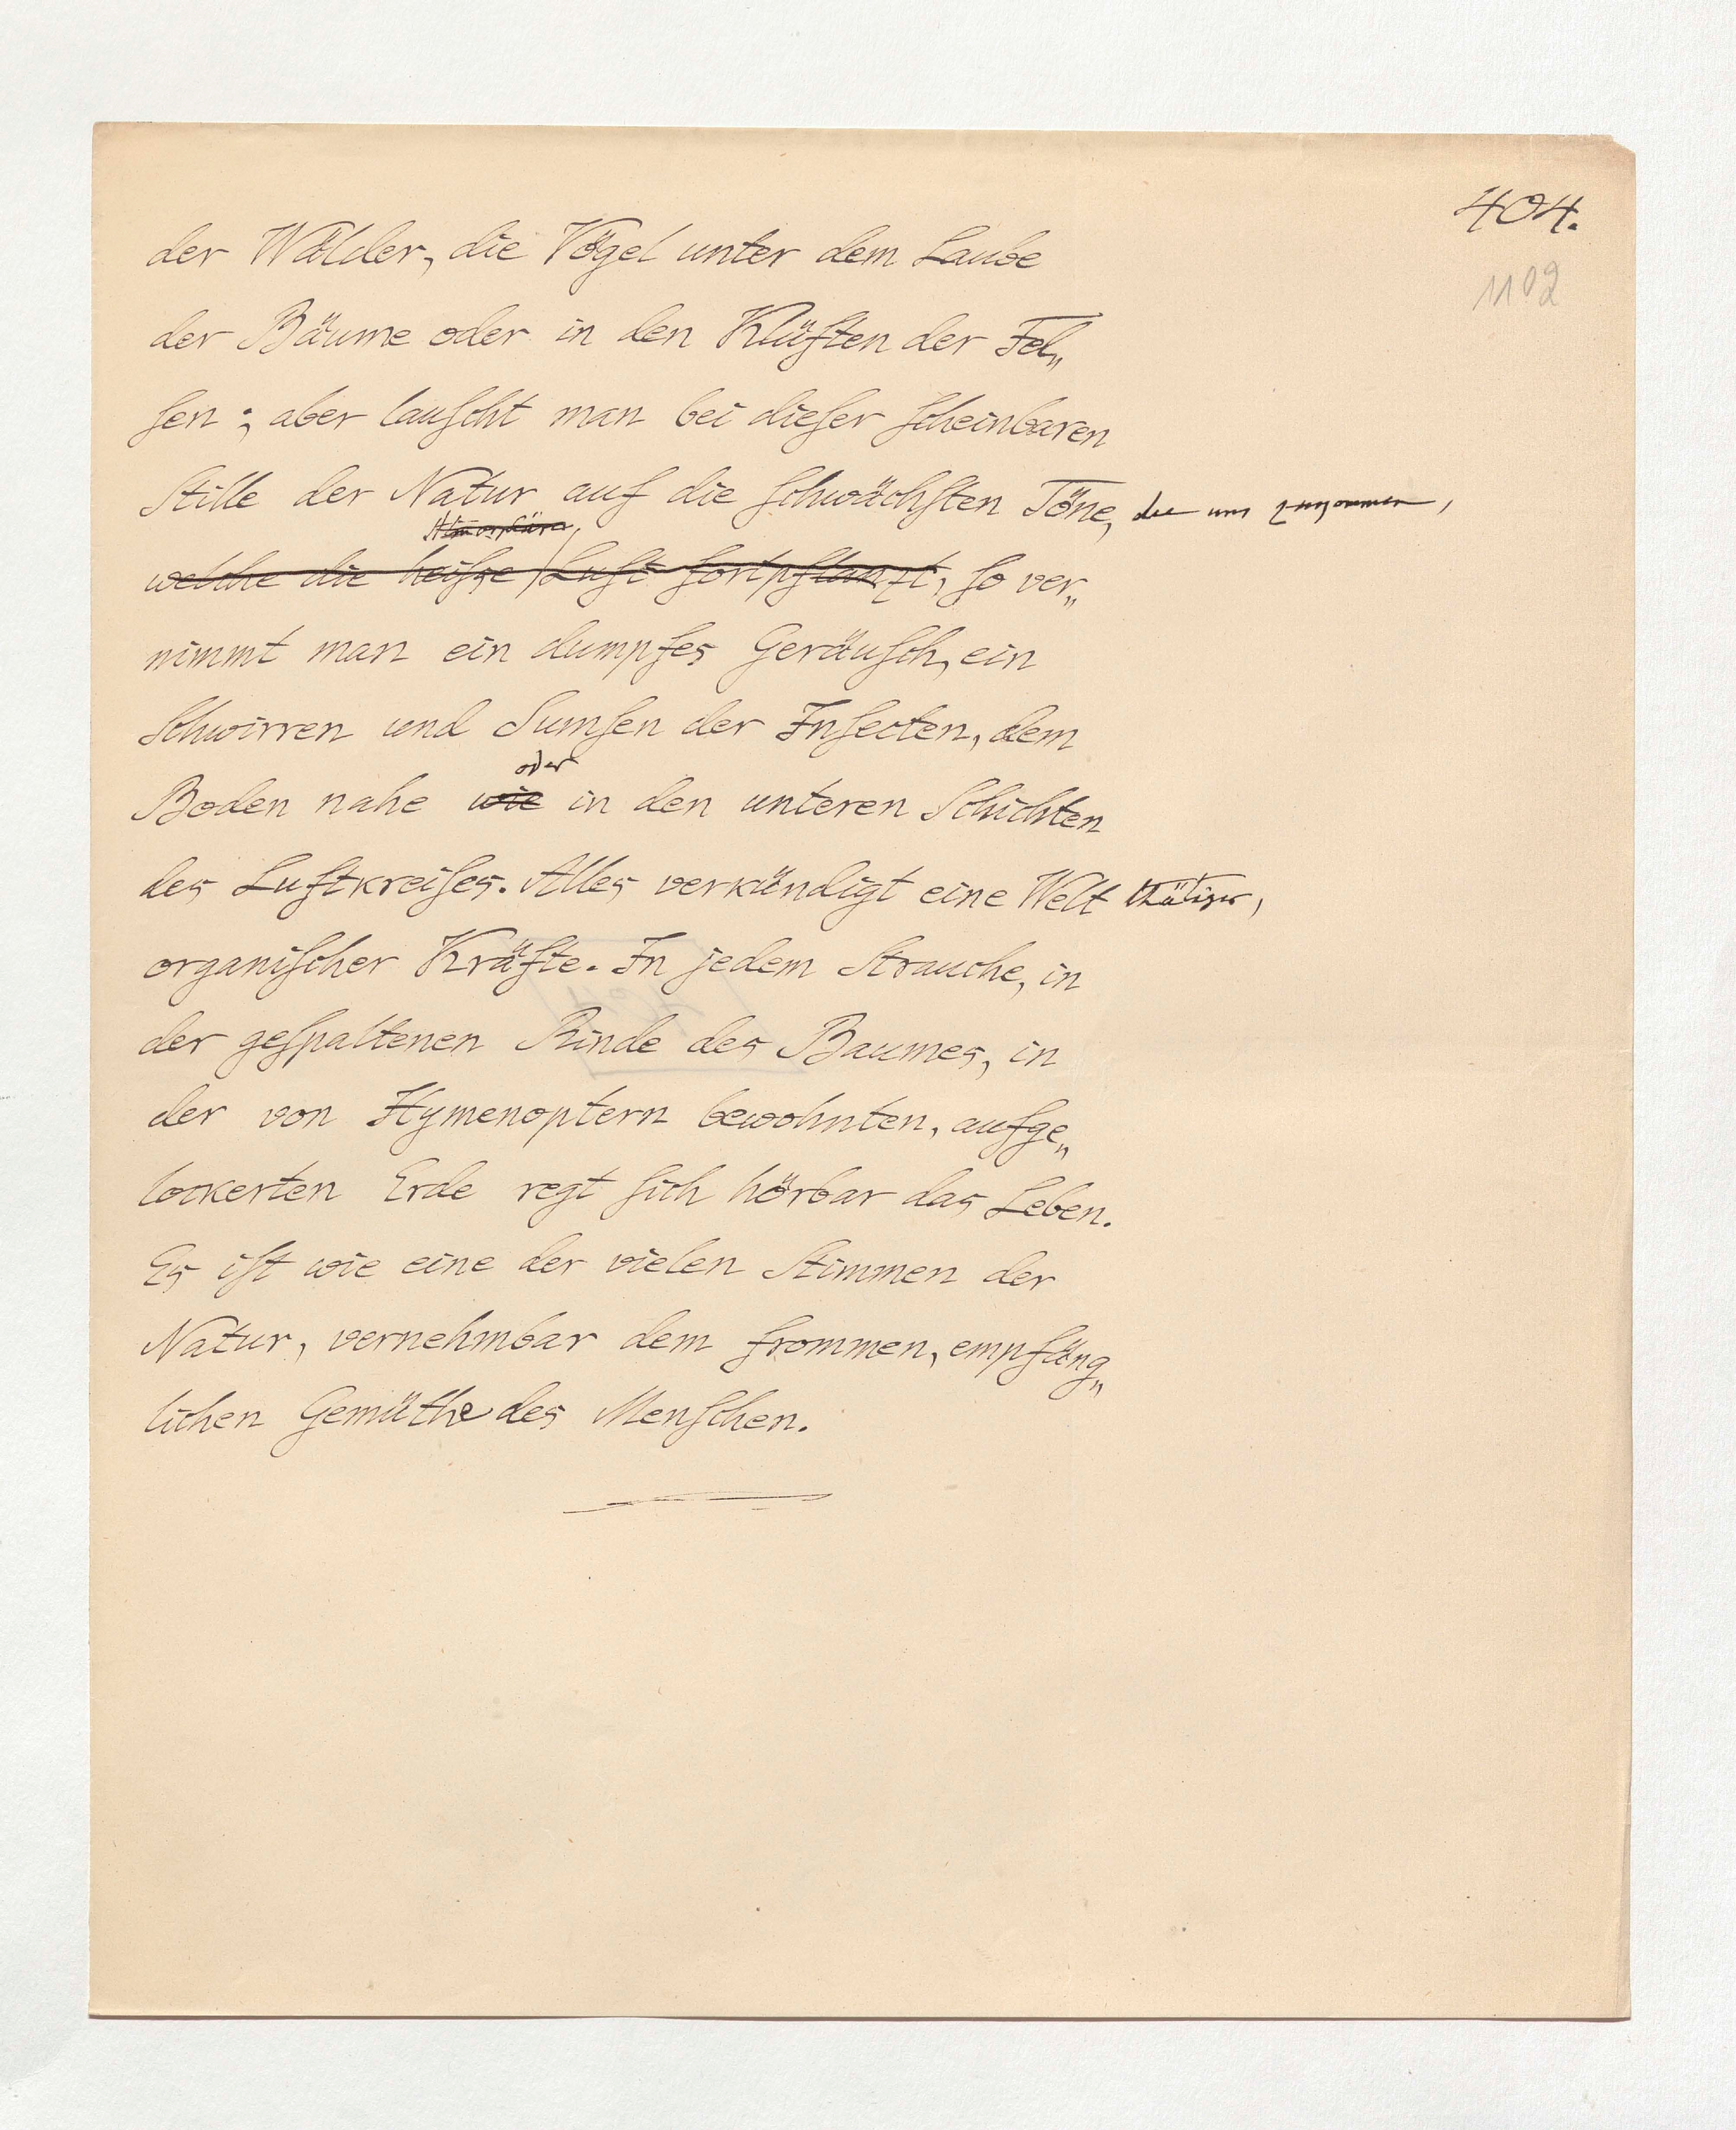 404.
1102
der Wälder, die Vögel unter dem Laube
der Bäume oder in den Klüften der Fel„
ſen; aber lauſcht man bei dieſer ſcheinbaren
Stille der Natur auf die ſchwächſten Töne, die uns zukommen,
Atmosphäre
welche die heiſse Luft fortpflanzt, ſo ver„
nimmt man ein dumpfes Geräuſch, ein
Schwirren und Sumſen der Inſecten, dem
oder
Boden nahe wie in den unteren Schichten
des Luftkreiſes. Alles verkündigt eine Welt thätiger,
organiſcher Kräfte. In jedem Strauche, in
der geſpaltenen Rinde des Baumes, in
der von Hymenoptern bewohnten, aufge„
lockerten Erde regt ſich hörbar das Leben.
Es iſt wie eine der vielen Stimmen der
Natur, vernehmbar dem frommen, empfäng„
lichen Gemüthe des Menſchen.